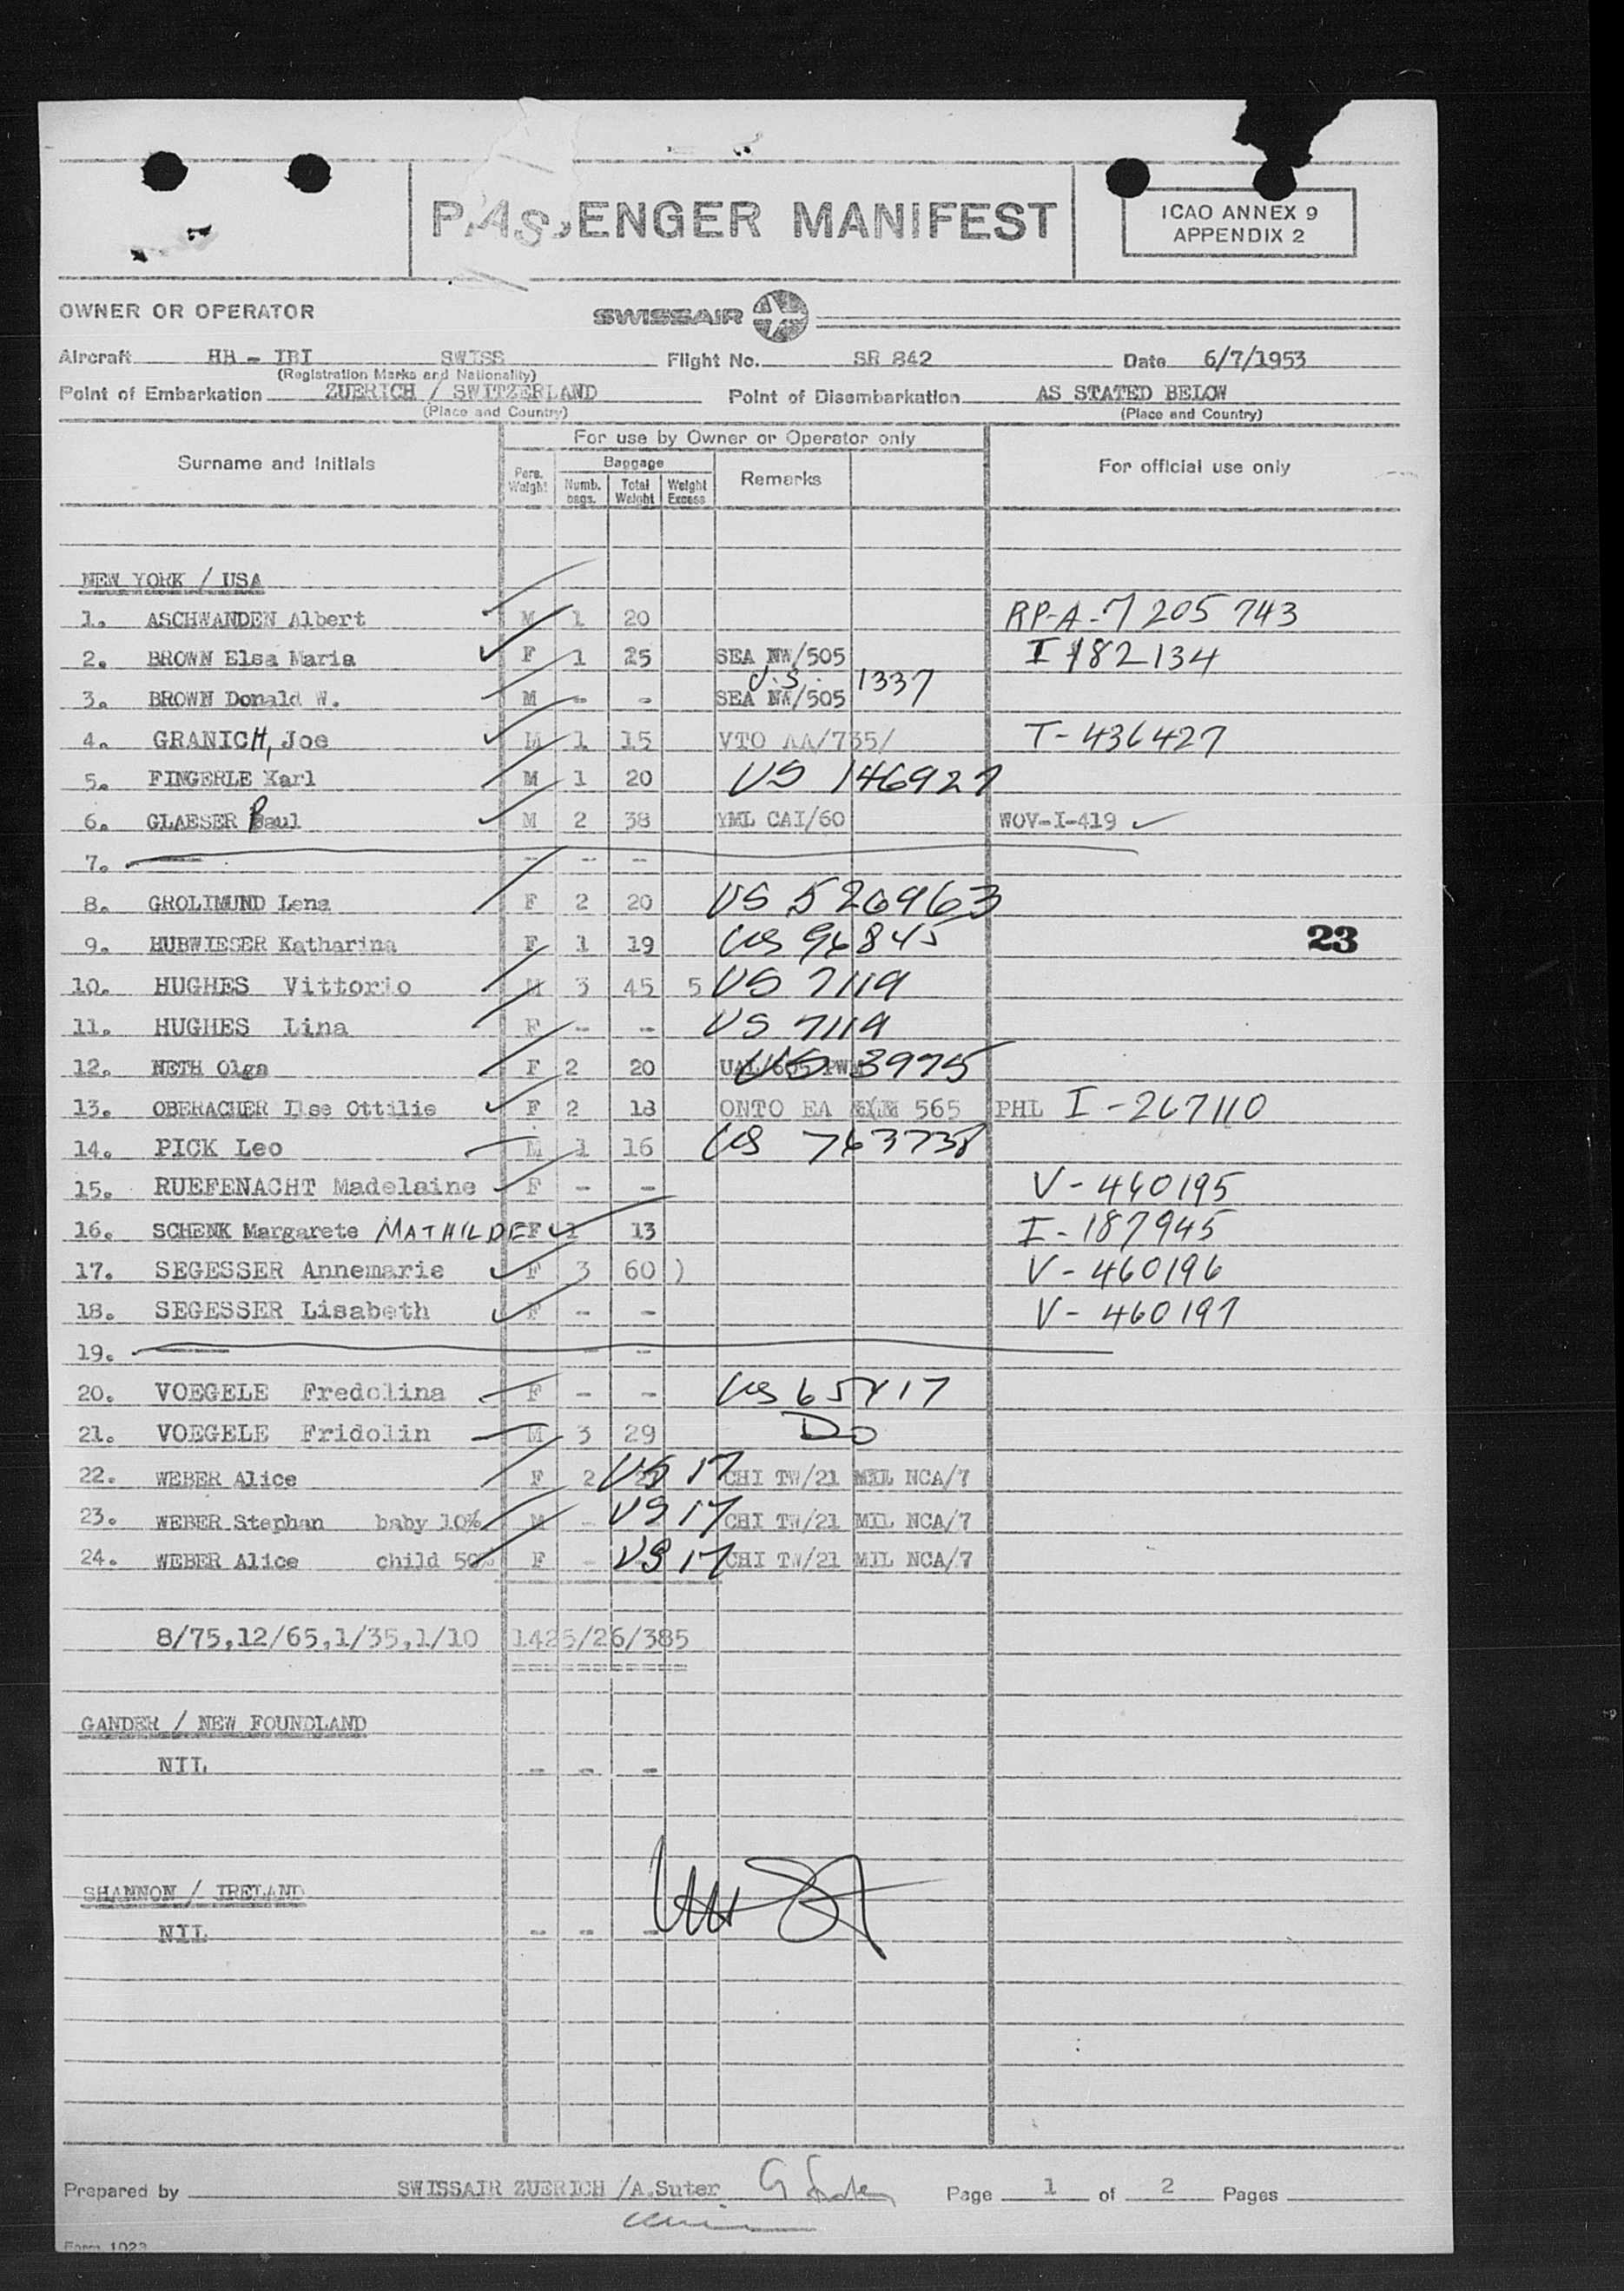 PASSENGER MANIFEST
ICAO ANNEX 9
APPENDIX 2
OWNER OR OPERATOR SWISSAIR
Aircraft HB - IBI SWISS Flight No. SR 842 Date 6/7/1953
(Registration Marks and Nationality)
Point of Embarkation ZUERICH / SWITZERLAND Point of Disembarkation AS STATED BELOW
(Place and Country) (Place and Country)
For use by Owner or Operator only
Surname and Initials Pers. Weight Baggage Numb. bags. Total Weight Weight Excess Remarks For official use only
NEW YORK / USA
1. ASCHWANDEN Albert M 1 20 RP-A-7 205 743
2. BROWN Elsa Maria F 1 25 SEA NW/505 I 182134
3. BROWN Donald W. M - - SEA NW/505 U.S. 1337
4. GRANICH, Joe M 1 15 VTO AA/735/ T-436427
5. FINGERLE Karl M 1 20 US 146927
6. GLAESER Paul M 2 38 YML CAI/60 WOV-I-419
7. - - -
8. GROLIMUND Lena F 2 20 US 526963
9. HUBWIESER Katharina F 1 19 US 96845 23
10. HUGHES Vittorio M 3 45 5 US 7119
11. HUGHES Lina F - - US 7119
12. NETH Olga F 2 20 UAL/605 PWM US 3975
13. OBERACHER Ilse Ottilie F 2 18 ONTO EA 565 PHL I-267110
14. PICK Leo M 1 16 US 763738
15. RUEFENACHT Madelaine F - - V-460195
16. SCHENK Margarete MATHILDE F 1 13 I-187945
17. SEGESSER Annemarie F 3 60 ) V-460196
18. SEGESSER Lisabeth F - - V-460197
19. - -
20. VOEGELE Fredolina F - - US 65417
21. VOEGELE Fridolin M 3 29 Do
22. WEBER Alice F 2 27 US 17 CHI TW/21 MIL NCA/7
23. WEBER Stephan baby 10% M - US 17 CHI TW/21 MIL NCA/7
24. WEBER Alice child 50% F - US 17 CHI TW/21 MIL NCA/7
8/75,12/65,1/35,1/10 1425/26/385
GANDER / NEW FOUNDLAND
NIL - - -
SHANNON / IRELAND
NIL - - -
Prepared by SWISSAIR ZUERICH /A.Suter Page 1 of 2 Pages
Form 1023